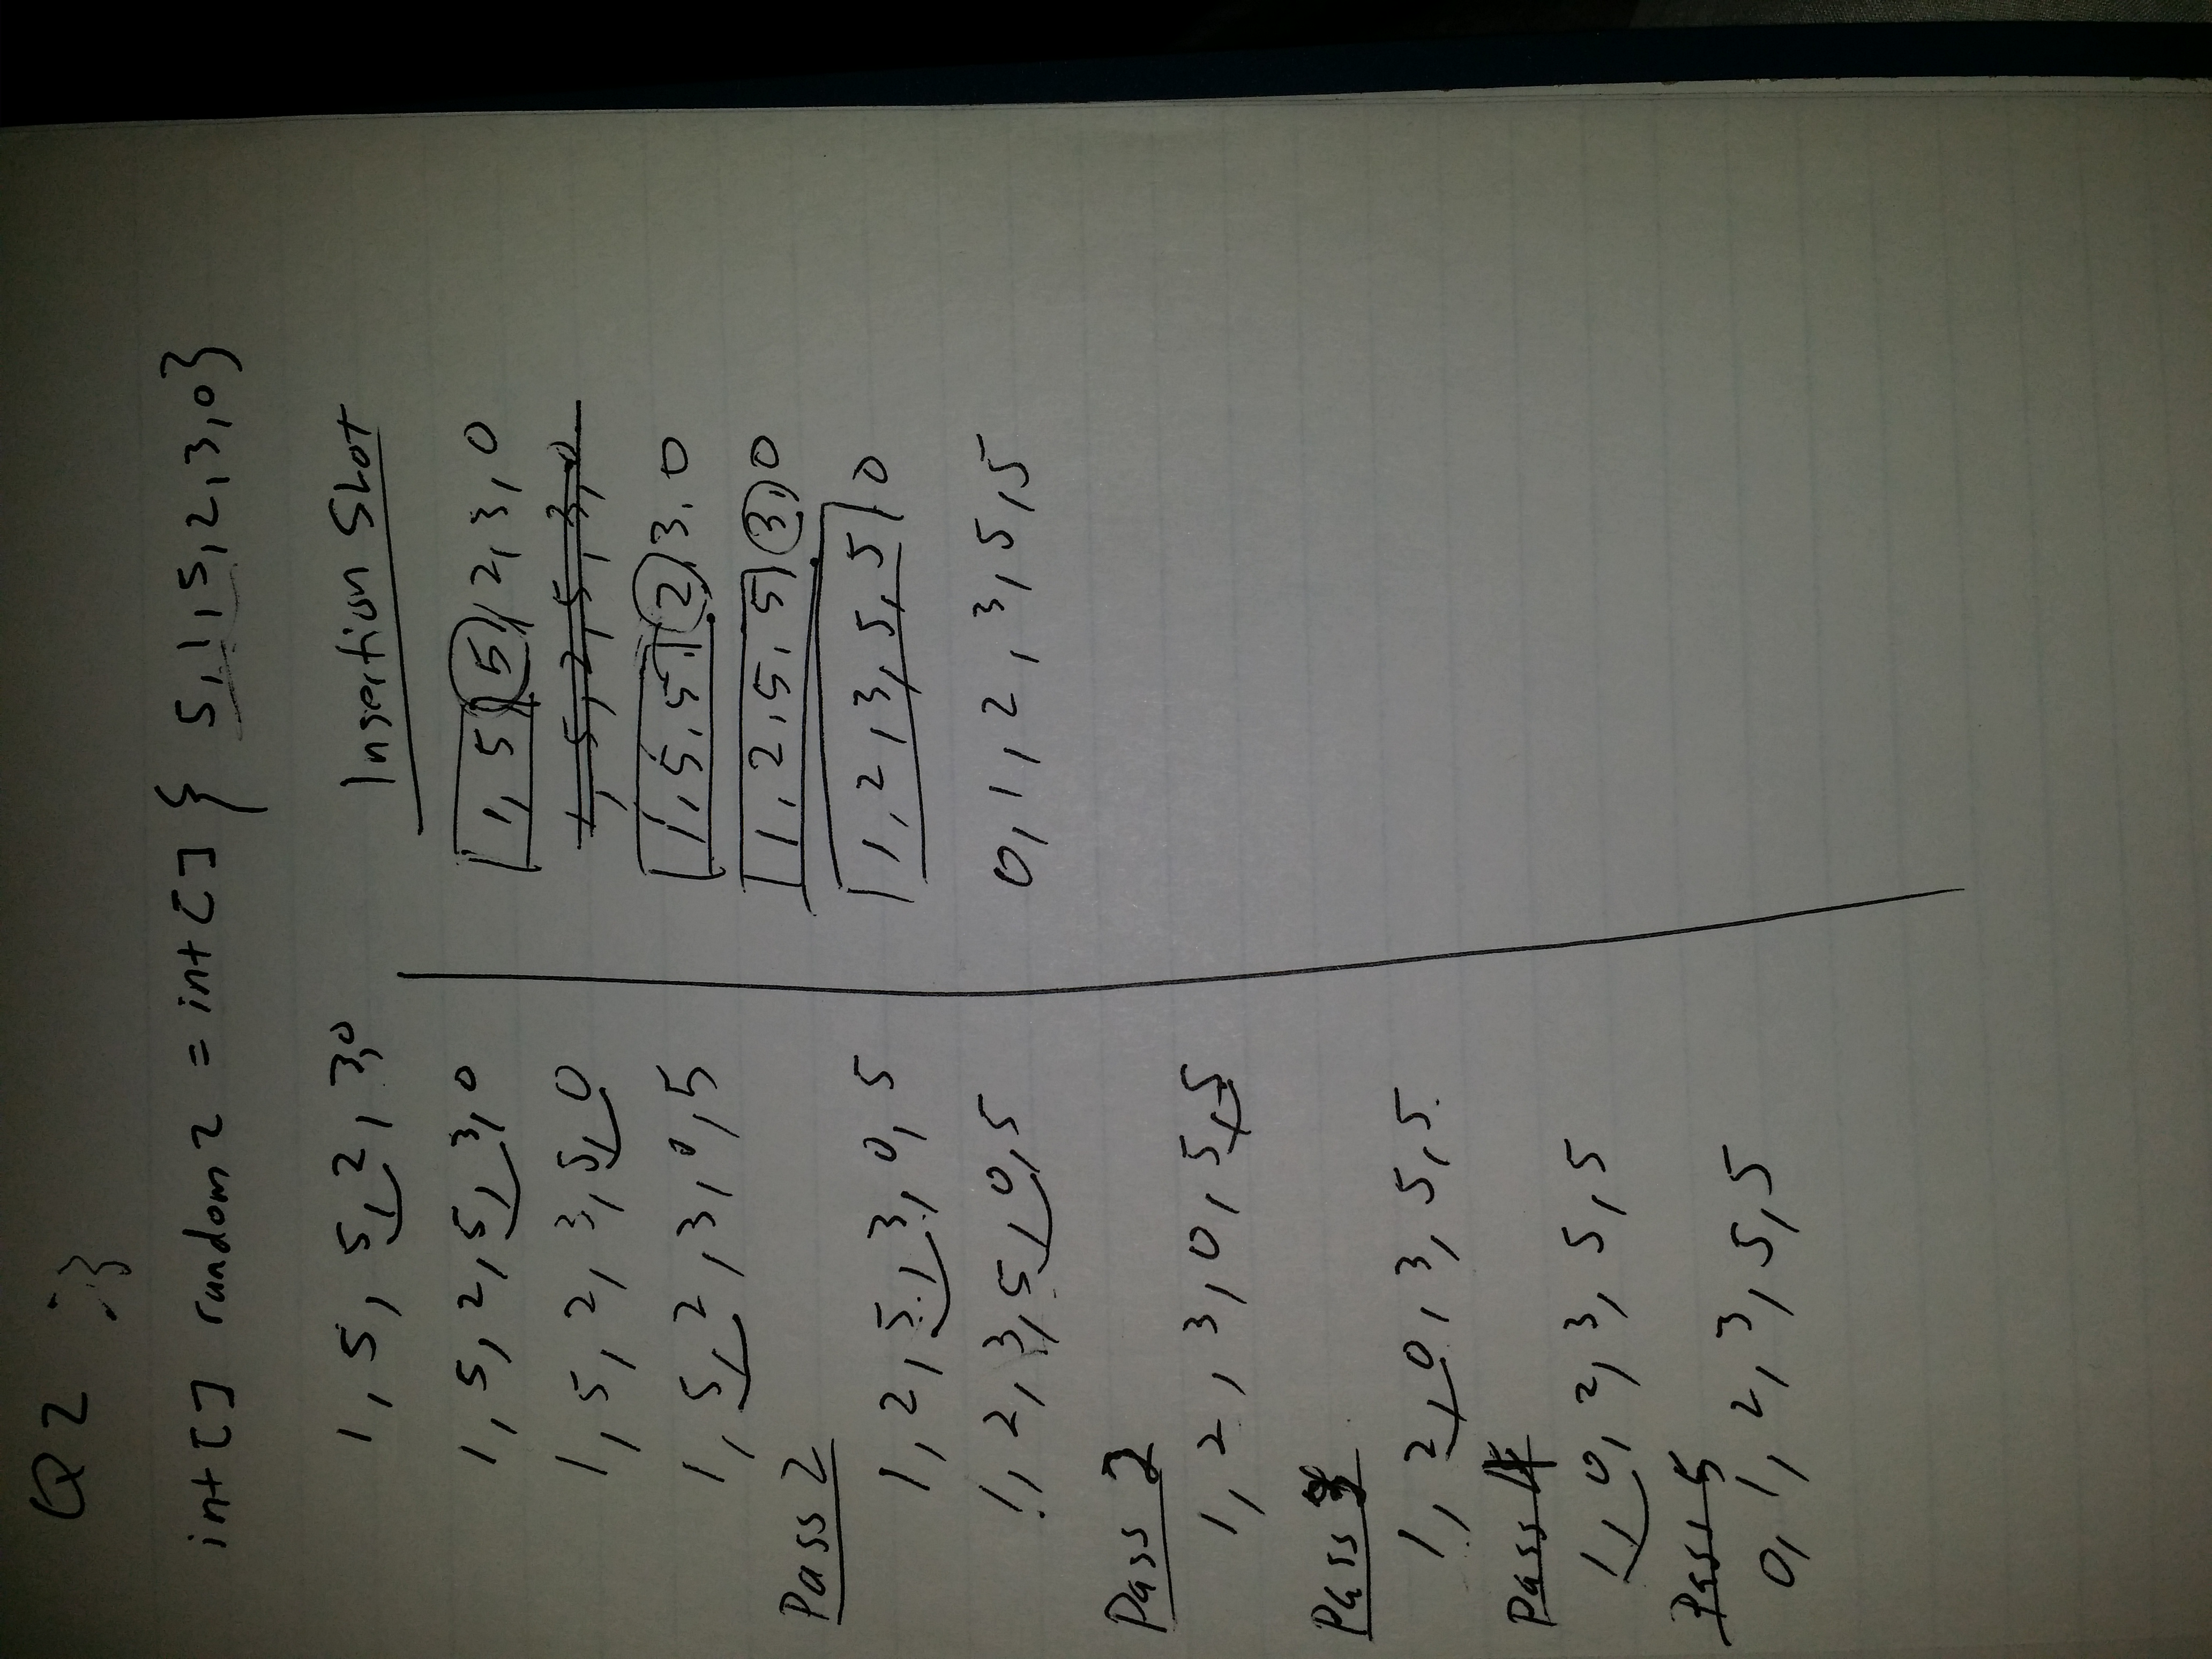 Q2 :}
int[] random2 = int[] { 5,1,5,2,3,0}
1, 5, 5, 2, 3,0
1, 5, 2, 5, 3, 0
1, 5, 2, 3, 5, 0
1, 5, 2, 3, 0, 5
Pass 2
1, 2, 5, 3, 0, 5
1, 2, 3, 5, 0, 5
Pass 2
1, 2, 3, 0, 5, 5
Pass
1, 2, 0, 3, 5, 5
Pass 4
1, 0, 2, 3, 5, 5
Pass 5
0, 1, 2, 3, 5, 5
Insertion Slot
1, 5, 5, 2, 3, 0
1, 5, 2, 5, 3, 0
1, 5, 5, 2, 3, 0
1, 2, 5, 5, 3, 0
1, 2, 3, 5, 5, 0
0, 1, 2, 3, 5, 5